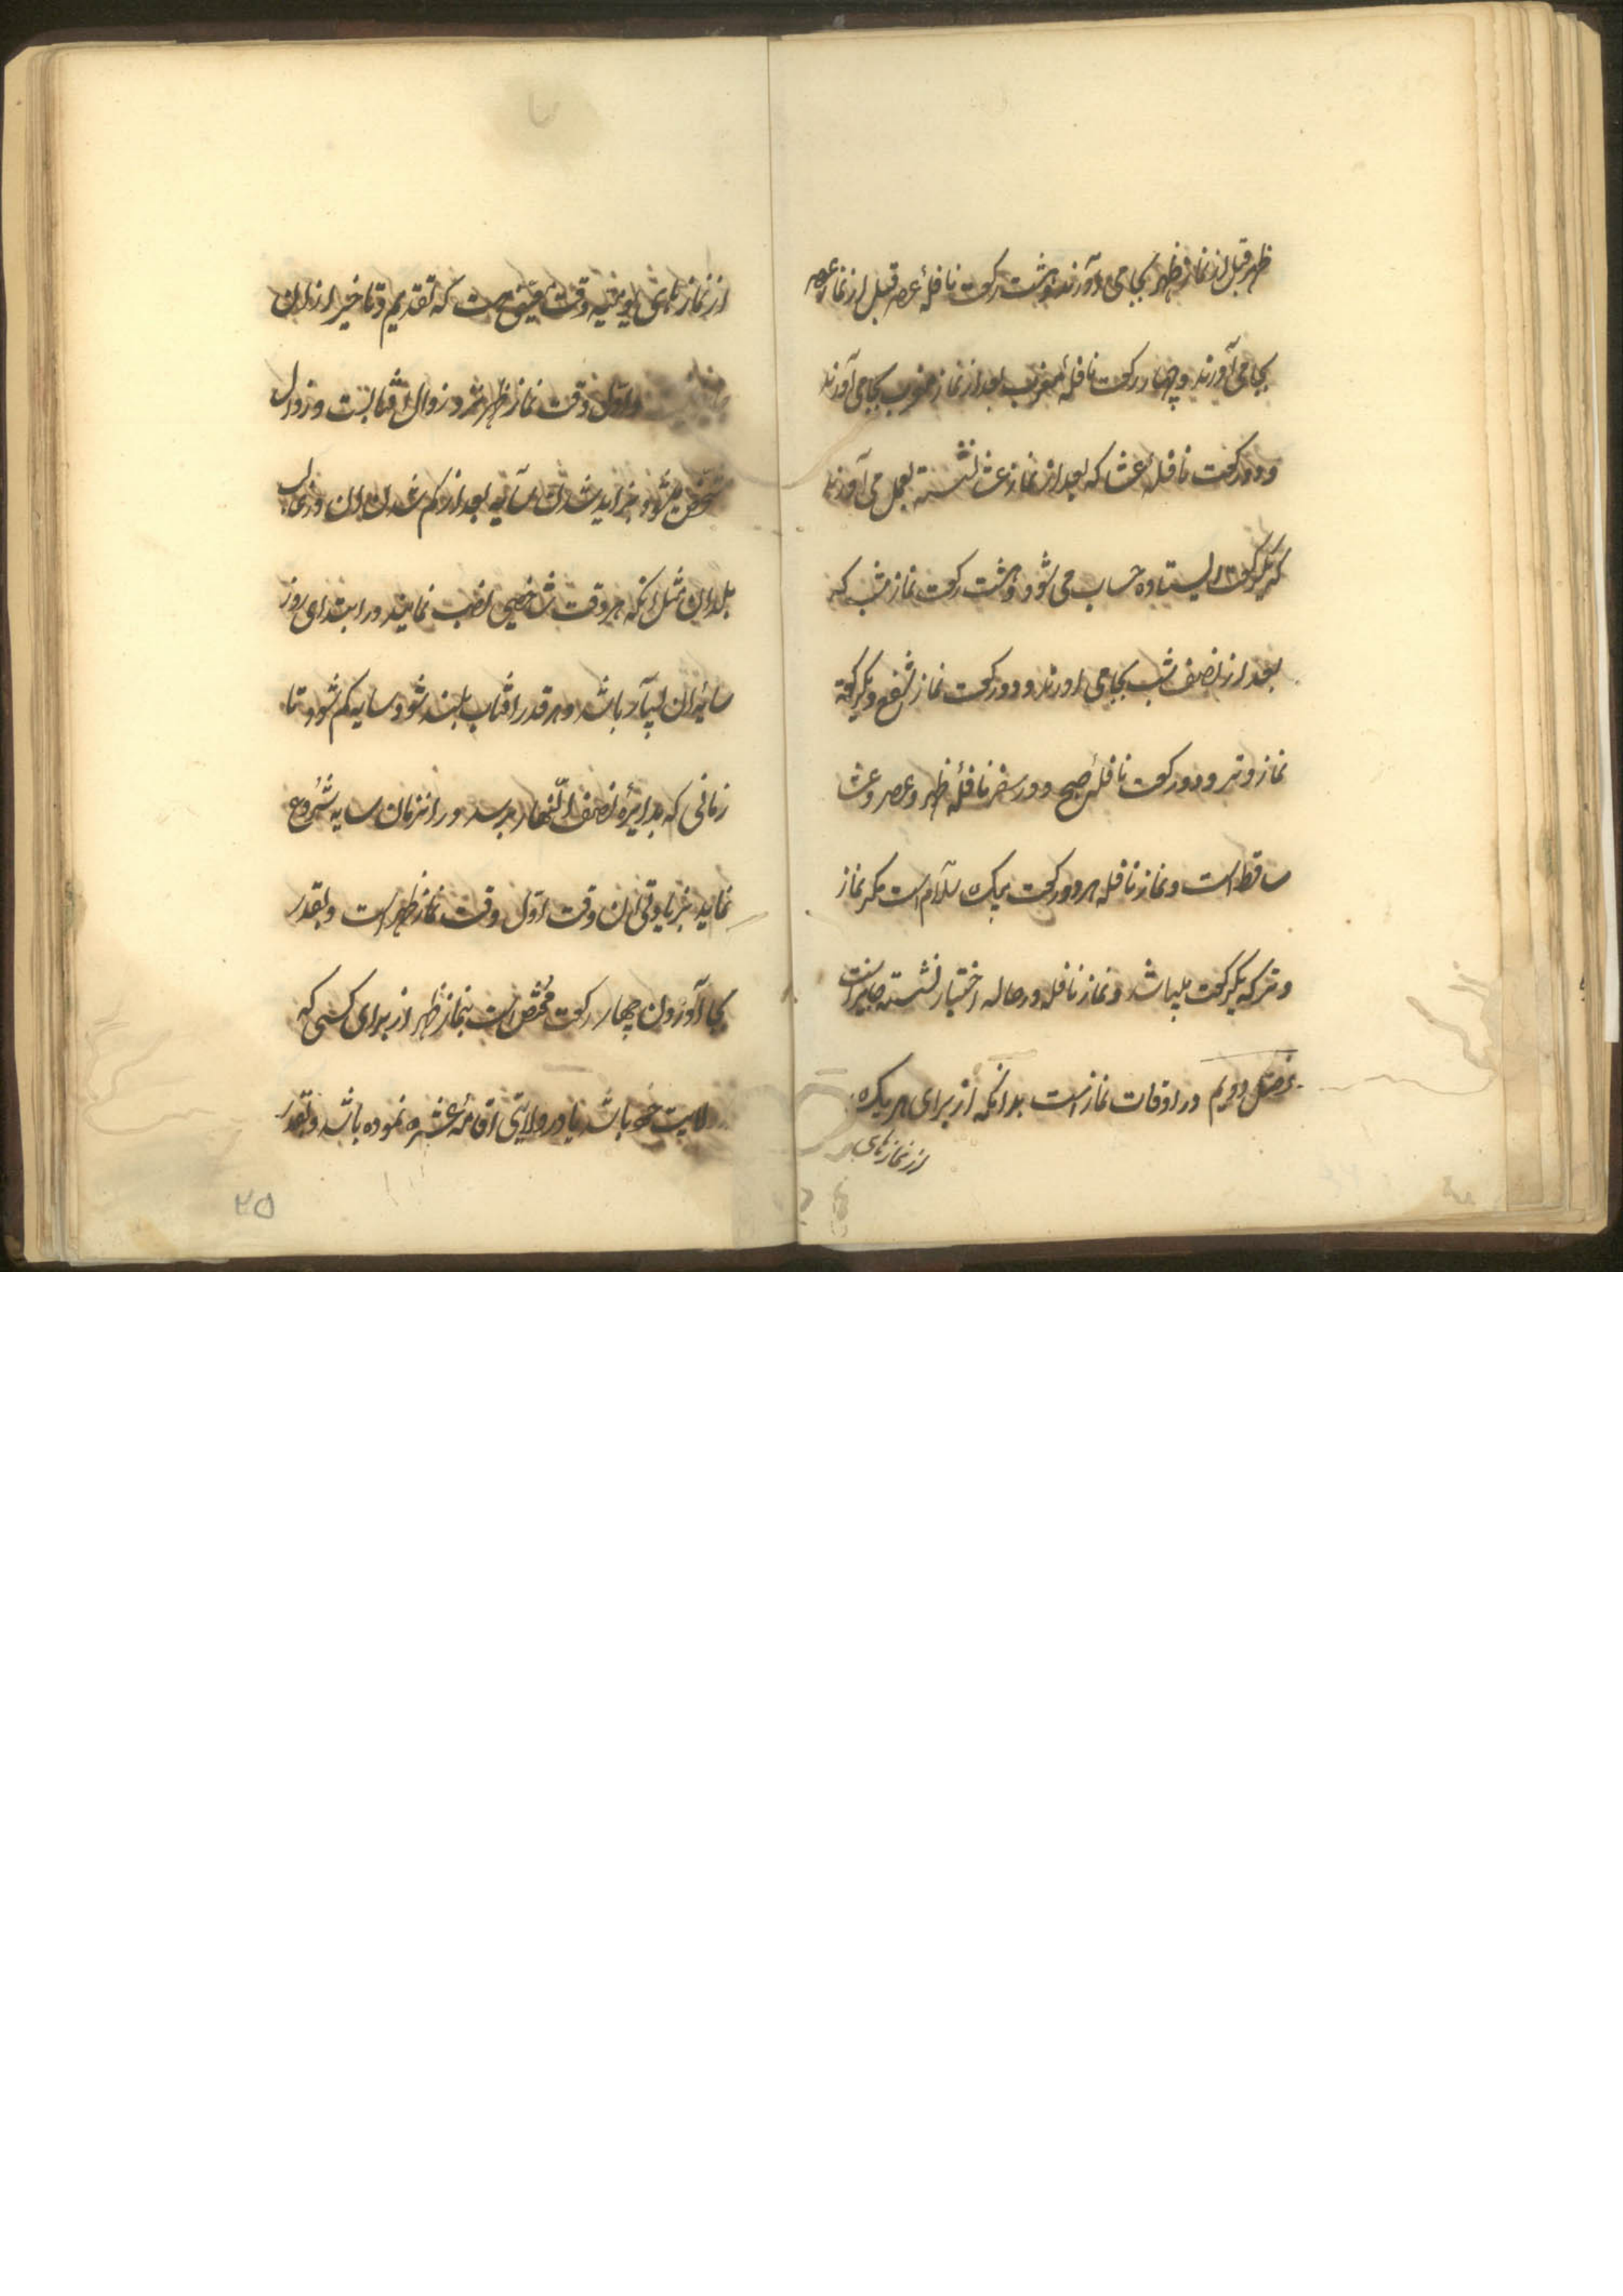 ظهر قبل از نماز ظهر بجا می آورند و هشت رکعت نافلهٔ عصر قبل از نماز عصر
بجا می آورند و چهار رکعت نافلهٔ مغرب بعد از نماز مغرب بجا می آورند
و دو رکعت نافلهٔ عشا که بعد از نماز عشا نشسته بعمل می آورند
که یکرکعت ایستاده حساب می شود و هشت رکعت نماز شب که
بعد از نصف شب بجا می اورند و دو رکعت نماز شفع و یکرکعت
نماز وتر و دو رکعت نافلهٔ صبح و در سفر نافلهٔ ظهر و عصر و عشا
ساقط است و نماز نافله هر دو رکعت بیک سلام است مگر نماز
وتر که یکرکعت میباشد و نماز نافله در حاله اختیار نشسته جایز است
فصل دویم در اوقات نماز است بدانکه از برای هر یک
از نمازهای
از نمازهای یومیه وقت معین است که تقدیم و تاخیر از ان
و اول وقت نماز ظهر زوال افتابست و زوال
مشخص میشود بزاید شدن سایه بعد از کم شدن ان در
بلدان مثل انکه هر وقت شاخصی نصب نمایند در ابتدای روز
سایهٔ ان بسیار باشد و هر قدر افتاب بلند شود سایه کم شود تا
زمانی که بدایرهٔ نصف النهار برسد در انزمان سایه شروع
نماید بزیادتی ان وقت اول وقت نماز ظهر است و بقدر
بجا آوردن چهار رکعت مختص است بنماز ظهر از برای کسی که
ولایت خود باشد یا در ولایتی اقامهٔ عشره نموده باشد و بقدر
۲۵